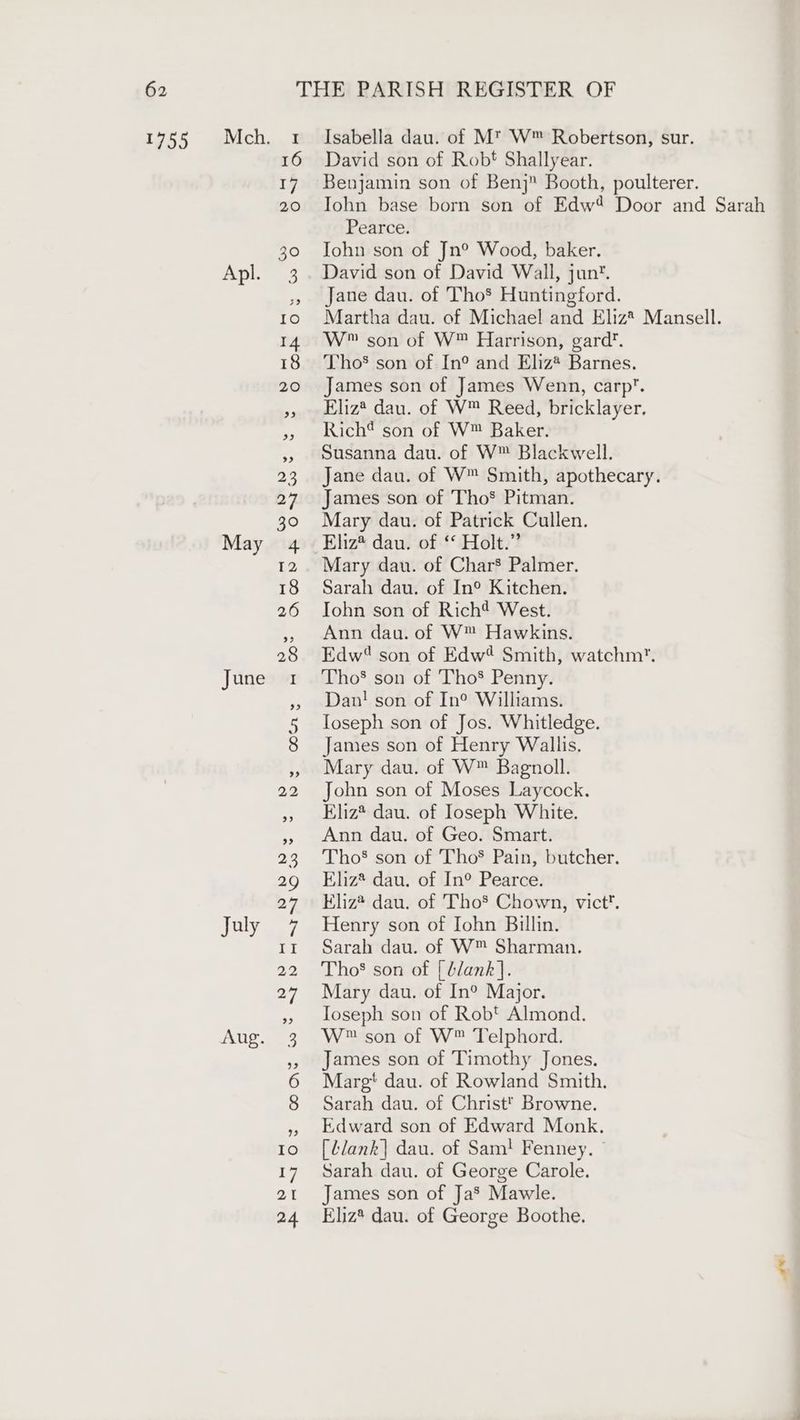 62 THE PARISH REGISTER OF
1755 Mch. 1 Isabella dau. of Mʳ Wᵐ Robertson, sur.
16 David son of Robᵗ Shallyear.
17 Benjamin son of Benjⁿ Booth, poulterer.
20 Iohn base born son of Edwᵈ Door and Sarah
Pearce.
30 Iohn son of Jnᵒ Wood, baker.
Apl. 3 David son of David Wall, junʳ.
,, Jane dau. of Thoˢ Huntingford.
10 Martha dau. of Michael and Elizᵃ Mansell.
14 Wᵐ son of Wᵐ Harrison, gardʳ.
18 Thoˢ son of Inᵒ and Elizᵃ Barnes.
20 James son of James Wenn, carpʳ.
,, Elizᵃ dau. of Wᵐ Reed, bricklayer.
,, Richᵈ son of Wᵐ Baker.
,, Susanna dau. of Wᵐ Blackwell.
23 Jane dau. of Wᵐ Smith, apothecary.
27 James son of Thoˢ Pitman.
30 Mary dau. of Patrick Cullen.
May 4 Elizᵃ dau. of “ Holt.”
12 Mary dau. of Charˢ Palmer.
18 Sarah dau. of Inᵒ Kitchen.
26 Iohn son of Richᵈ West.
,, Ann dau. of Wᵐ Hawkins.
28 Edwᵈ son of Edwᵈ Smith, watchmʳ.
June 1 Thoˢ son of Thoˢ Penny.
,, Danˡ son of Inᵒ Williams.
5 Ioseph son of Jos. Whitledge.
8 James son of Henry Wallis.
,, Mary dau. of Wᵐ Bagnoll.
22 John son of Moses Laycock.
,, Elizᵃ dau. of Ioseph White.
,, Ann dau. of Geo. Smart.
23 Thoˢ son of Thoˢ Pain, butcher.
29 Elizᵃ dau. of Inᵒ Pearce.
27 Elizᵃ dau. of Thoˢ Chown, victʳ.
July 7 Henry son of Iohn Billin.
11 Sarah dau. of Wᵐ Sharman.
22 Thoˢ son of [blank].
27 Mary dau. of Inᵒ Major.
,, Ioseph son of Robᵗ Almond.
Aug. 3 Wᵐ son of Wᵐ Telphord.
,, James son of Timothy Jones.
6 Margᵗ dau. of Rowland Smith.
8 Sarah dau. of Christʳ Browne.
,, Edward son of Edward Monk.
10 [blank] dau. of Samˡ Fenney.
17 Sarah dau. of George Carole.
21 James son of Jaˢ Mawle.
24 Elizᵃ dau. of George Boothe.